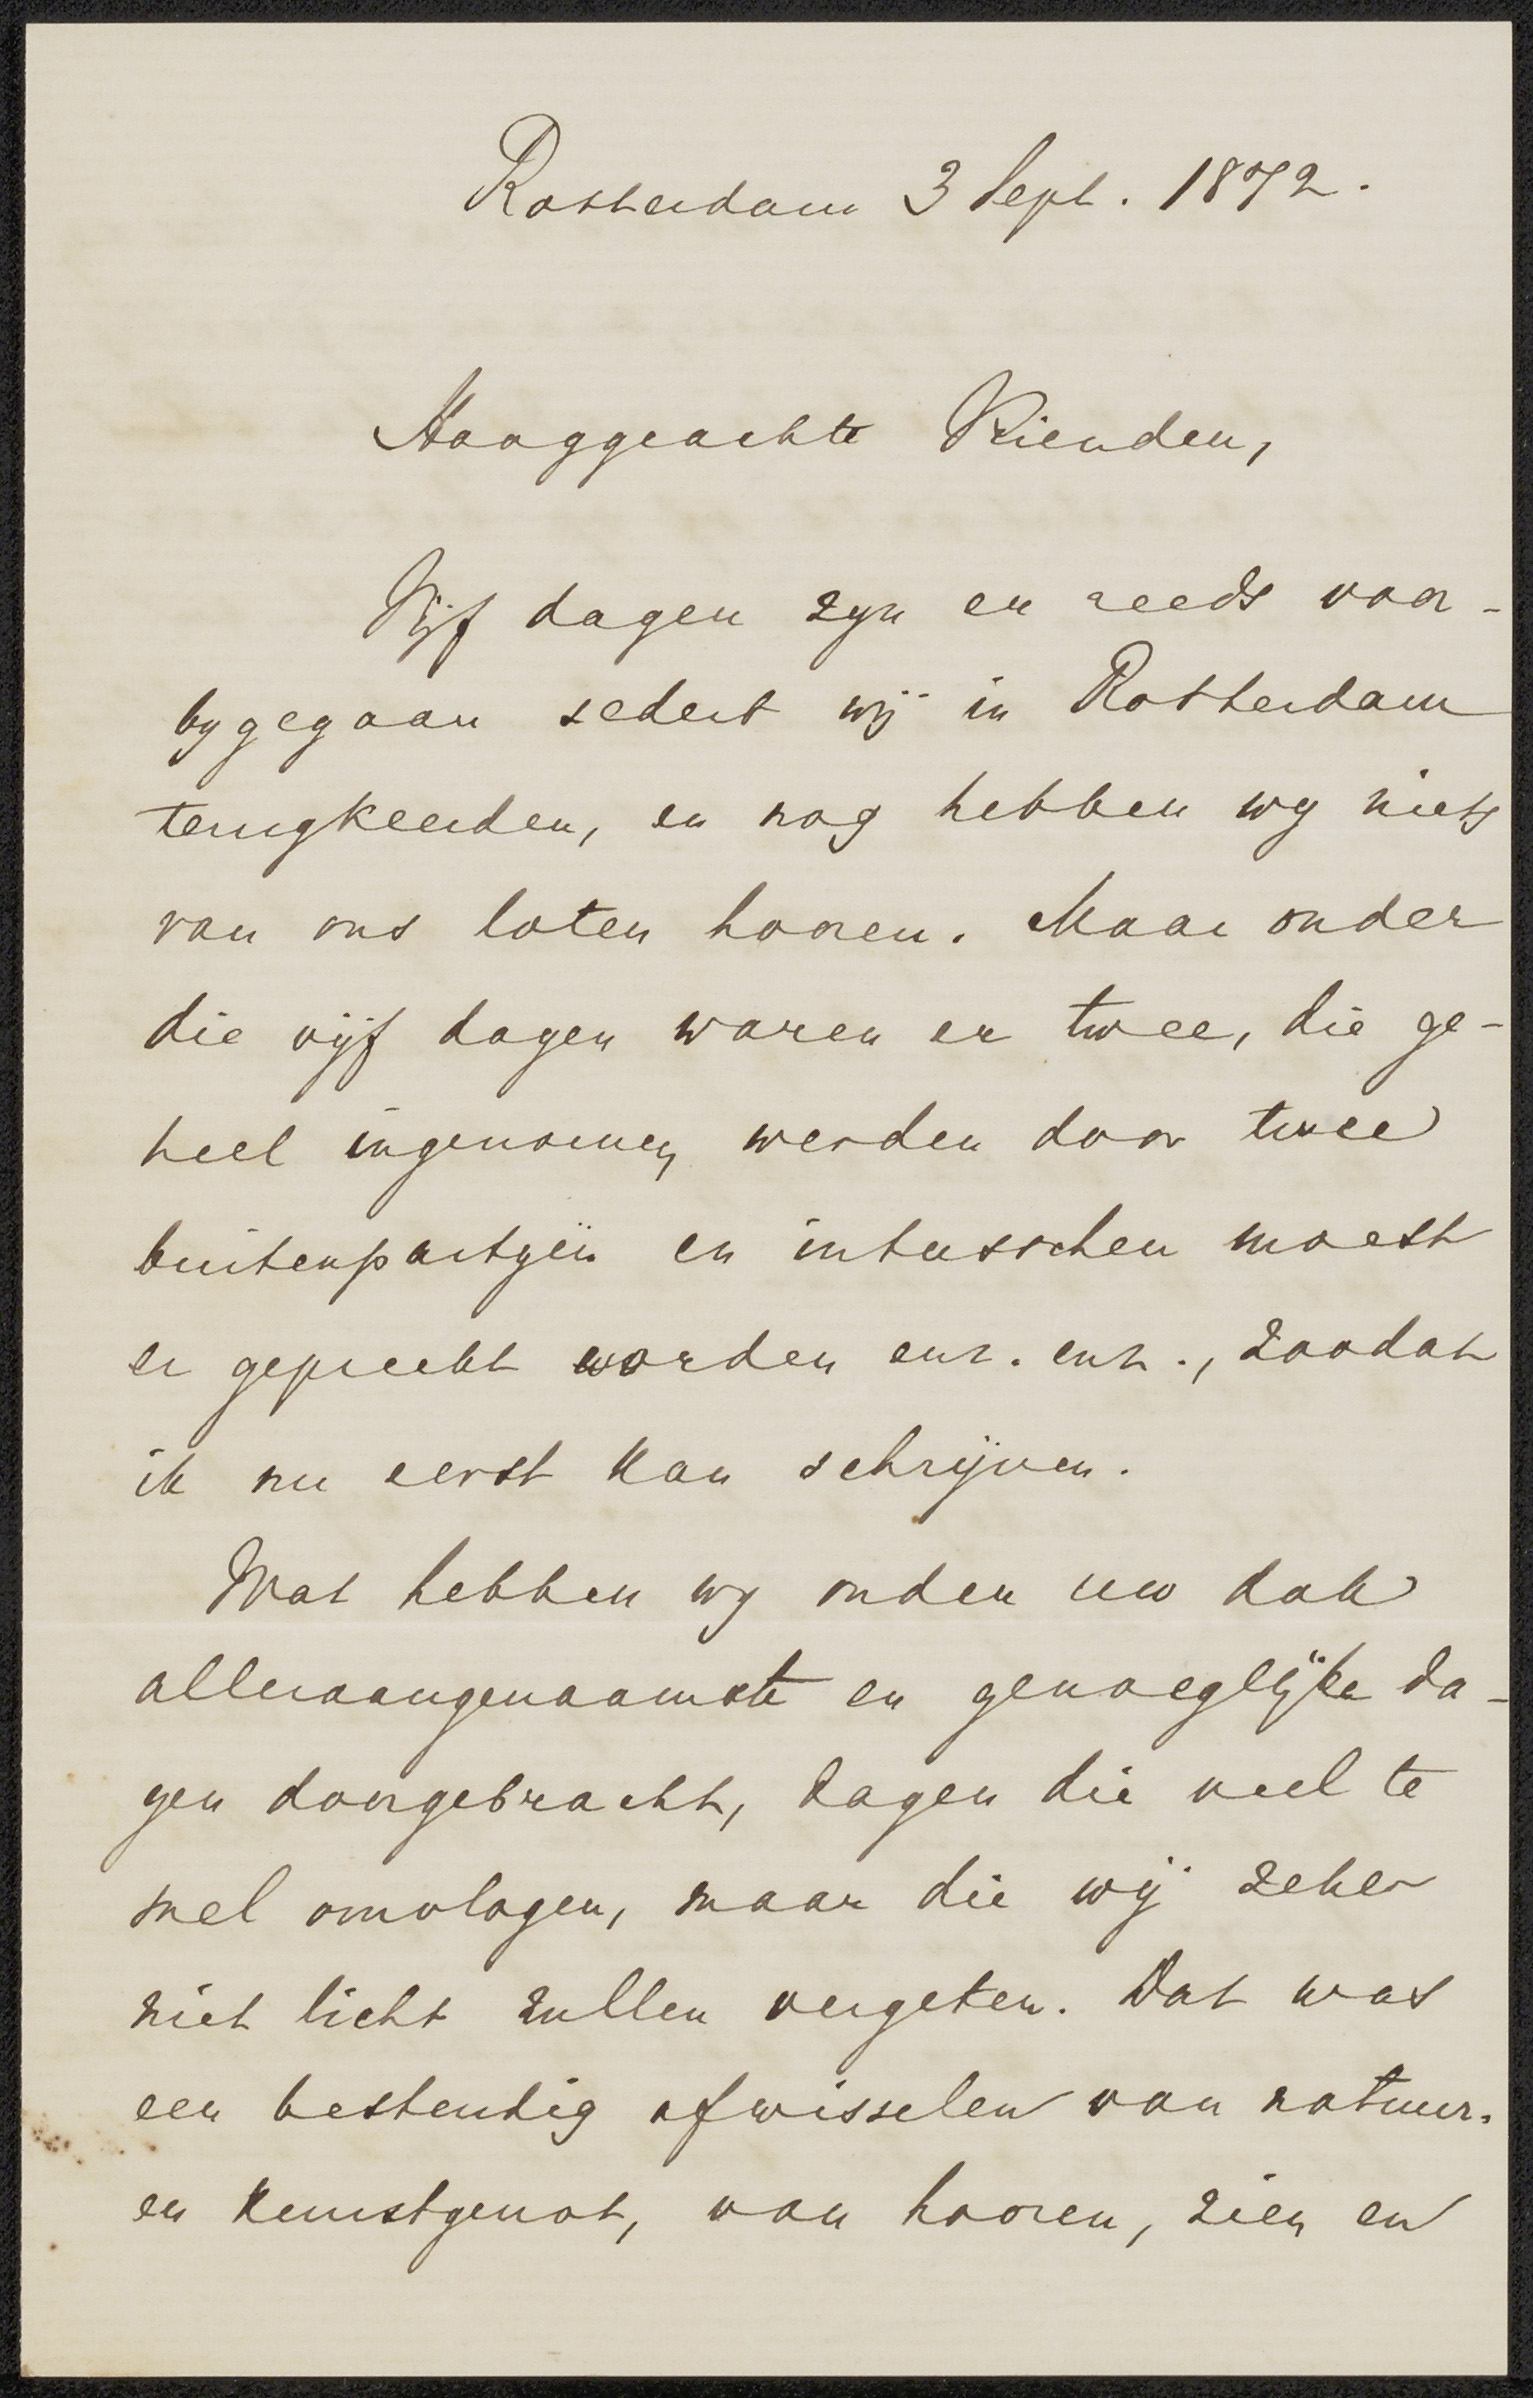 Rotterdam 3 Sept. 1872.
Hooggeachte Vrienden,
Vijf dagen zyn er reeds voor-
bygegaan sedert wij in Rotterdam
terugkeerden, en nog hebben wy niets
van ons laten hooren. Maar onder
die vijf dagen waren er twee, die ge-
heel ingenomen werden door twee
buitenpartyen en intusschen moest
er gepreekt worden enz. enz., zoodat
ik nu eerst kan schrijven.
Wat hebben wy onder uw dak
alleraangenaamste en genoeglijke da-
gen doorgebracht, dagen die veel te
snel omvlogen, maar die wij zeker
niet licht zullen vergeten. Dat was
een bestendig afwisselen van natuur-
en kunstgenot, van hooren, zien en